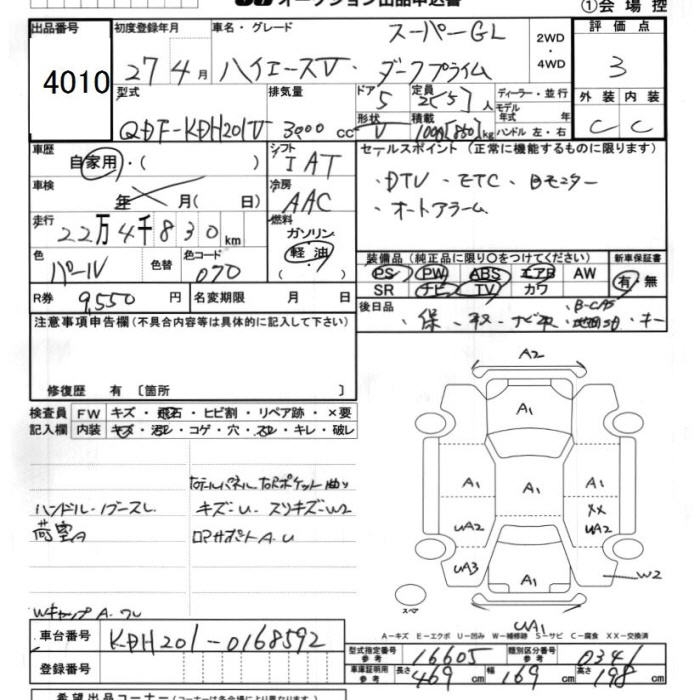 オークション出品申込書
①会場控
出品番号 初度登録年月 車名・グレード スーパーGL 2WD ・ 4WD 評価点
4010 27年4月 ハイエースV・ダークプライム 3
型式 排気量 ドア 5 定員 2(5)人 ディーラー・並行 外装 内装
QDF-KDH201V 3000cc 形状 V 積載 kg モデル年式 年 ハンドル 左・右 C C
車歴 自家用・( ) シフト IAT セールスポイント(正常に機能するものに限ります)
車検 年 月( 日) 冷房 AAC ・DTV ・ETC ・Bモニター
走行 22万4千830km 燃料 ガソリン 軽油 ( ) ・オートアラーム
色 パール 色替 色コード 070
装備品(純正品に限り○をつけてください) 新車保証書
PS PW ABS エアB AW 有・無
SR ナビ TV カワ
R券 9,550円 名変期限 月 日
後日品 ・保・取・ナビ取・ ・キー
注意事項申告欄(不具合内容等は具体的に記入して下さい)
修復歴 有 〔箇所 〕
検査員記入欄 FW キズ・飛石・ヒビ割・リペア跡・×要
内装 キズ・汚レ・コゲ・穴・スレ・キレ・破レ
ハンドル・ノブスレ キズ-U・スリキズ-W2
荷室A ロアサポートA.U
WキャップA.ワレ
A2
A1
A1 A1 A1
XX
UA2 UA2
UA3 A1 W2
スペア
UA1
A-キズ E-エクボ U-凹み W-補修跡 S-サビ C-腐食 XX-交換済
車台番号 KDH201-0168592
型式指定番号 参考 16605 類別区分番号 参考 0341
登録番号
車庫証明用 参考 長さ 469cm 幅 169cm 高さ 198cm
希望出品コーナー